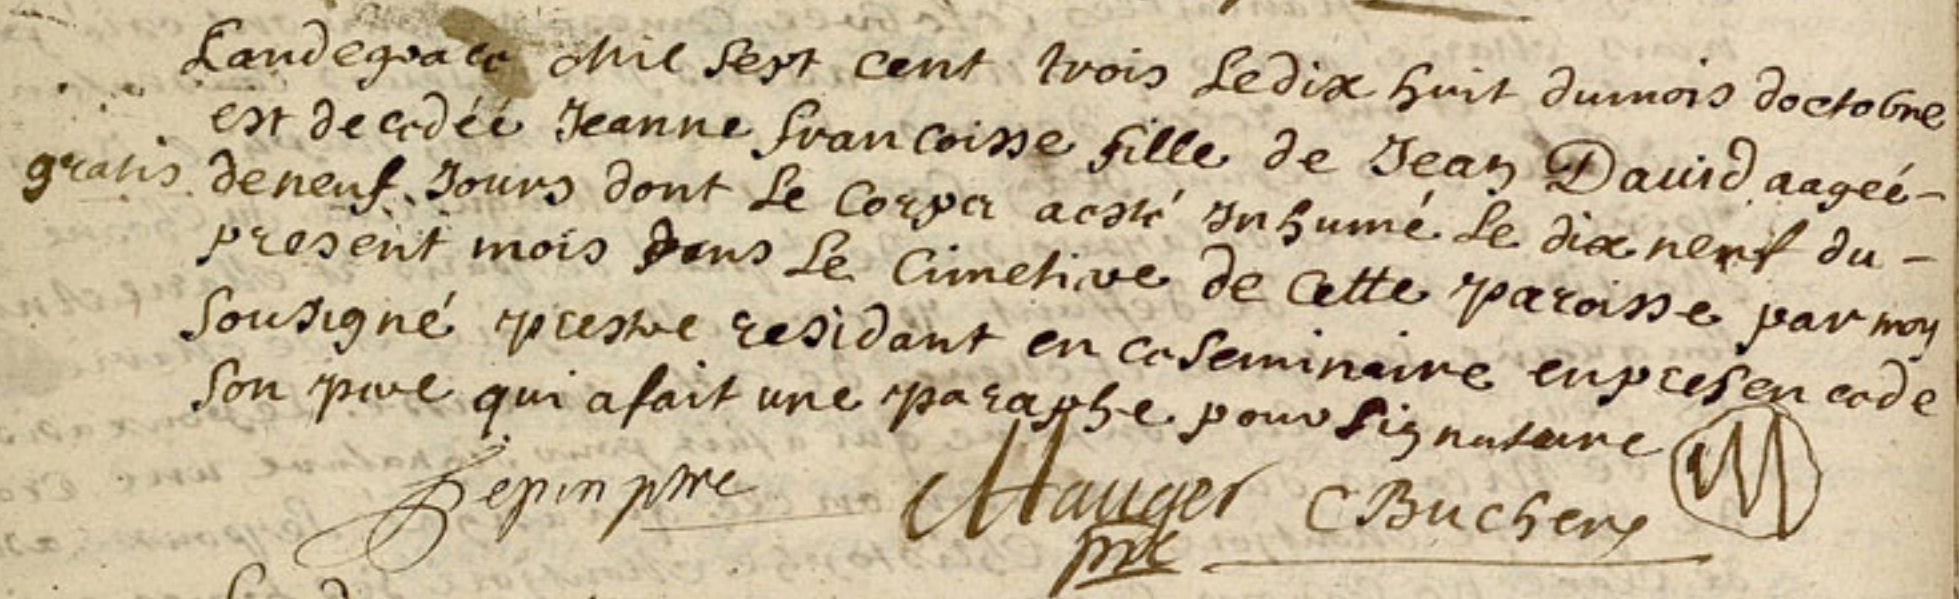 Landegrace Mil Sept cent trois Le dix huit dumois doctobre
est decedéé Jeanne francoisse fille de Jean Dauid aageé-
gratis deneuf Jours dont Le Corps aesté Inhumé Le dix neuf du-
present mois dans Le Cimetire de Cette paroisse par moy
Sousigné prestre residant en ce Seminaire enpresencede
Son pere qui afait une paraphe pour Signature M
Lepin pbre Mauger C Buchere
pbre